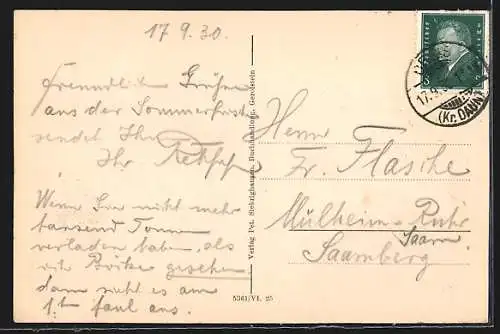 17 9. 30.
Freundliche Grüße
aus der Sommerfrische
sendet Ihr
Ihr
Wenn Sie nicht mehr
tausend Tonnen
verladen haben, als
wir gesehen,
dann sieht es am
1.t faul aus.
Verlag Pet. Stekrighausen, Buchhandlung, Gerolstein
5361/VI. 25
Herrn
Fr. Flasche
Mülheim-Ruhr
Saarn
Saarnberg
17.9.3
(Kr. DAUN)